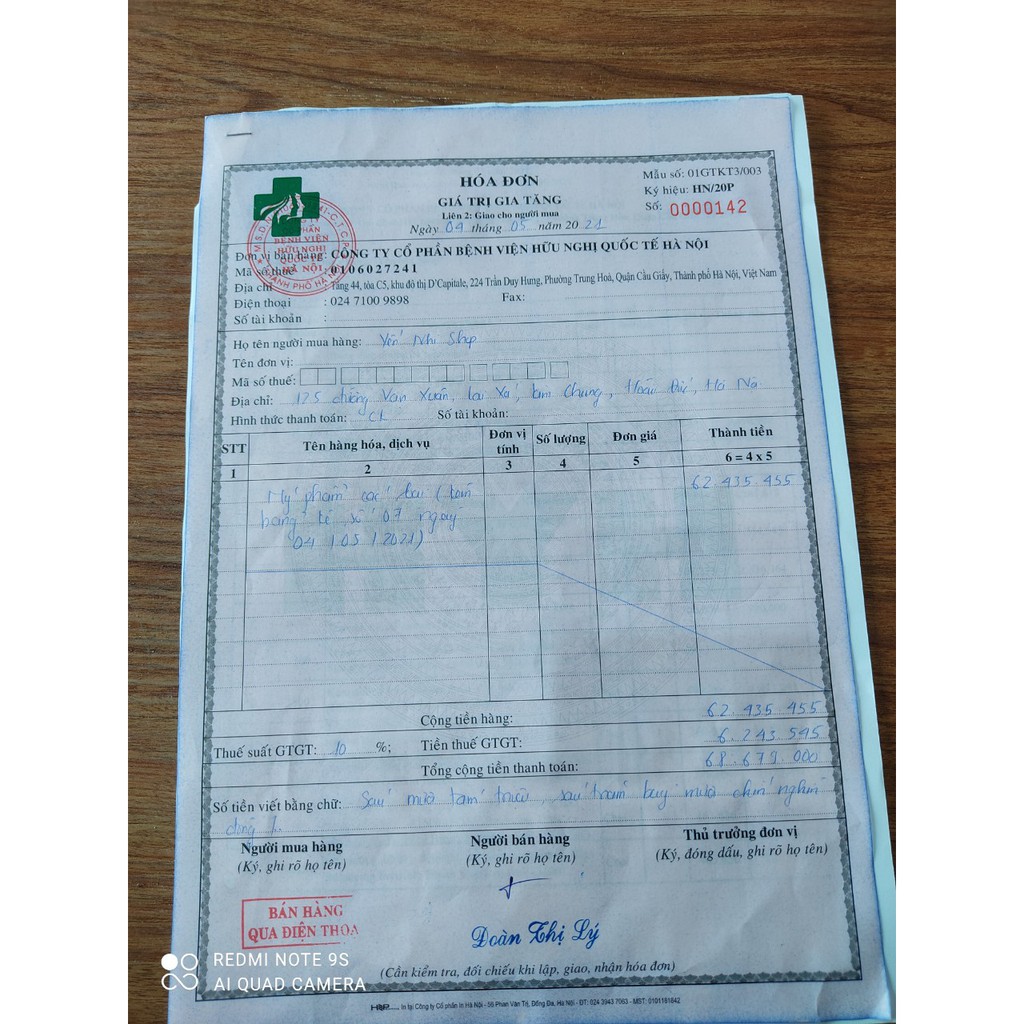 HÓA ĐƠN
GIÁ TRỊ GIA TĂNG
Liên 2: Giao cho người mua
Ngày 04 tháng 05 năm 2021
Mẫu số: 01GTKT3/003
Ký hiệu: HN/20P
Số: 0000142
BỆNH VIỆN
HỮU NGHỊ
QUỐC TẾ
HÀ NỘI
Đơn vị bán hàng: CÔNG TY CỔ PHẦN BỆNH VIỆN HỮU NGHỊ QUỐC TẾ HÀ NỘI
Mã số thuế : 0106027241
Địa chỉ : Tầng 44, tòa C5, khu đô thị D'Capitale, 224 Trần Duy Hưng, Phường Trung Hoà, Quận Cầu Giấy, Thành phố Hà Nội, Việt Nam
Điện thoại : 024 7100 9898 Fax:
Số tài khoản :
Họ tên người mua hàng: Yến Nhi Shop
Tên đơn vị:
Mã số thuế:
Địa chỉ: 125 đường Vạn Xuân, Lai Xá, Kim Chung, Hoài Đức, Hà Nội
Hình thức thanh toán: Số tài khoản:
STT Tên hàng hóa, dịch vụ Đơn vị tính Số lượng Đơn giá Thành tiền
1 2 3 4 5 6 = 4 x 5
Mỹ phẩm các loại ( 62.435.455
bảng kê số 07 ngày
04/05/2021)
Cộng tiền hàng: 62.435.455
Thuế suất GTGT: 10 %; Tiền thuế GTGT: 6.243.545
Tổng cộng tiền thanh toán: 68.679.000
Số tiền viết bằng chữ: Sáu mươi tám triệu, sáu trăm bảy mươi chín nghìn
đồng
Người mua hàng Người bán hàng Thủ trưởng đơn vị
(Ký, ghi rõ họ tên) (Ký, ghi rõ họ tên) (Ký, đóng dấu, ghi rõ họ tên)
BÁN HÀNG
QUA ĐIỆN THOẠI
Đoàn Thị Lý
(Cần kiểm tra, đối chiếu khi lập, giao, nhận hóa đơn)
REDMI NOTE 9S
AI QUAD CAMERA
In tại Công ty Cổ phần In Hà Nội - 56 Phan Văn Trị, Đống Đa, Hà Nội - ĐT: 024 3943 7063 - MST: 0101151642